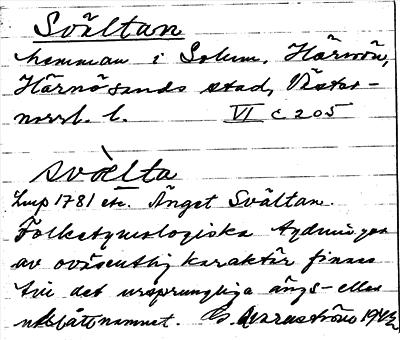 Svältan
hemman i Solum, Härnön,
Härnösands stad, Väster-
norrl. l. VI c 205
svälta
Lmp 1781 etc. Änget Svältan.
Folketymologiska tydningar
av oväsentlig karaktär finnas
till det ursprungliga ängs- eller
utslåttnamnet. 1942